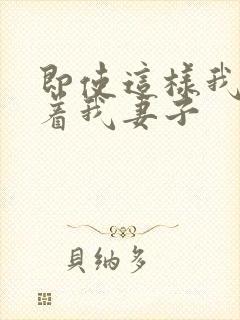 即使這樣我
着我妻子
貝納多